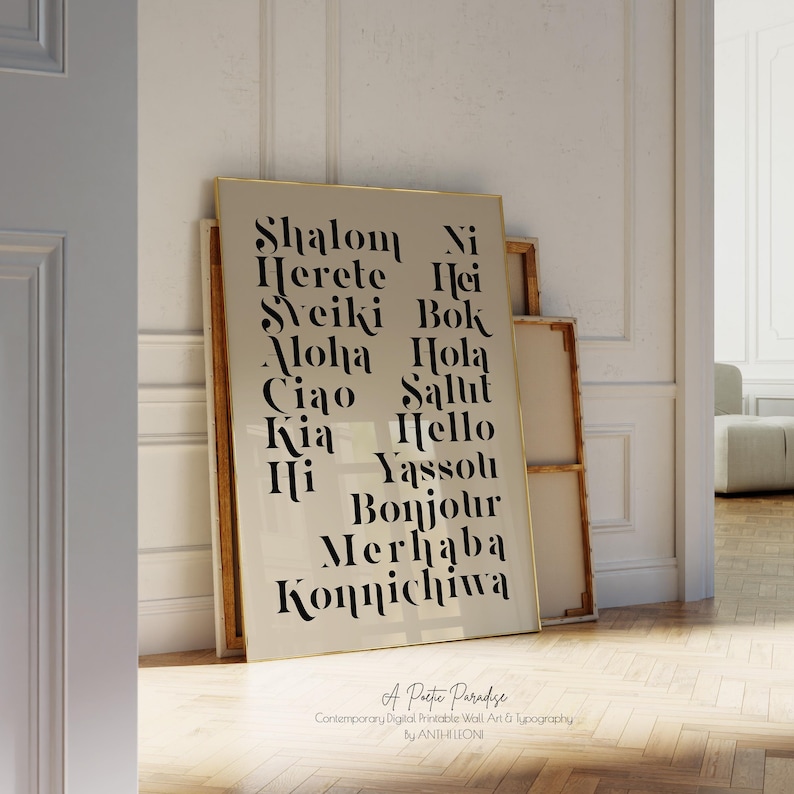 Shalom Ni
Herete Hei
Sveiki Bok
Aloha Hola
Ciao Salut
Kia Hello
Hi Yassou
Bonjour
Merhaba
Konnichiwa
A Poetic Paradise
Contemporary Digital Printable Wall Art & Typography
By ANTHI LEONI